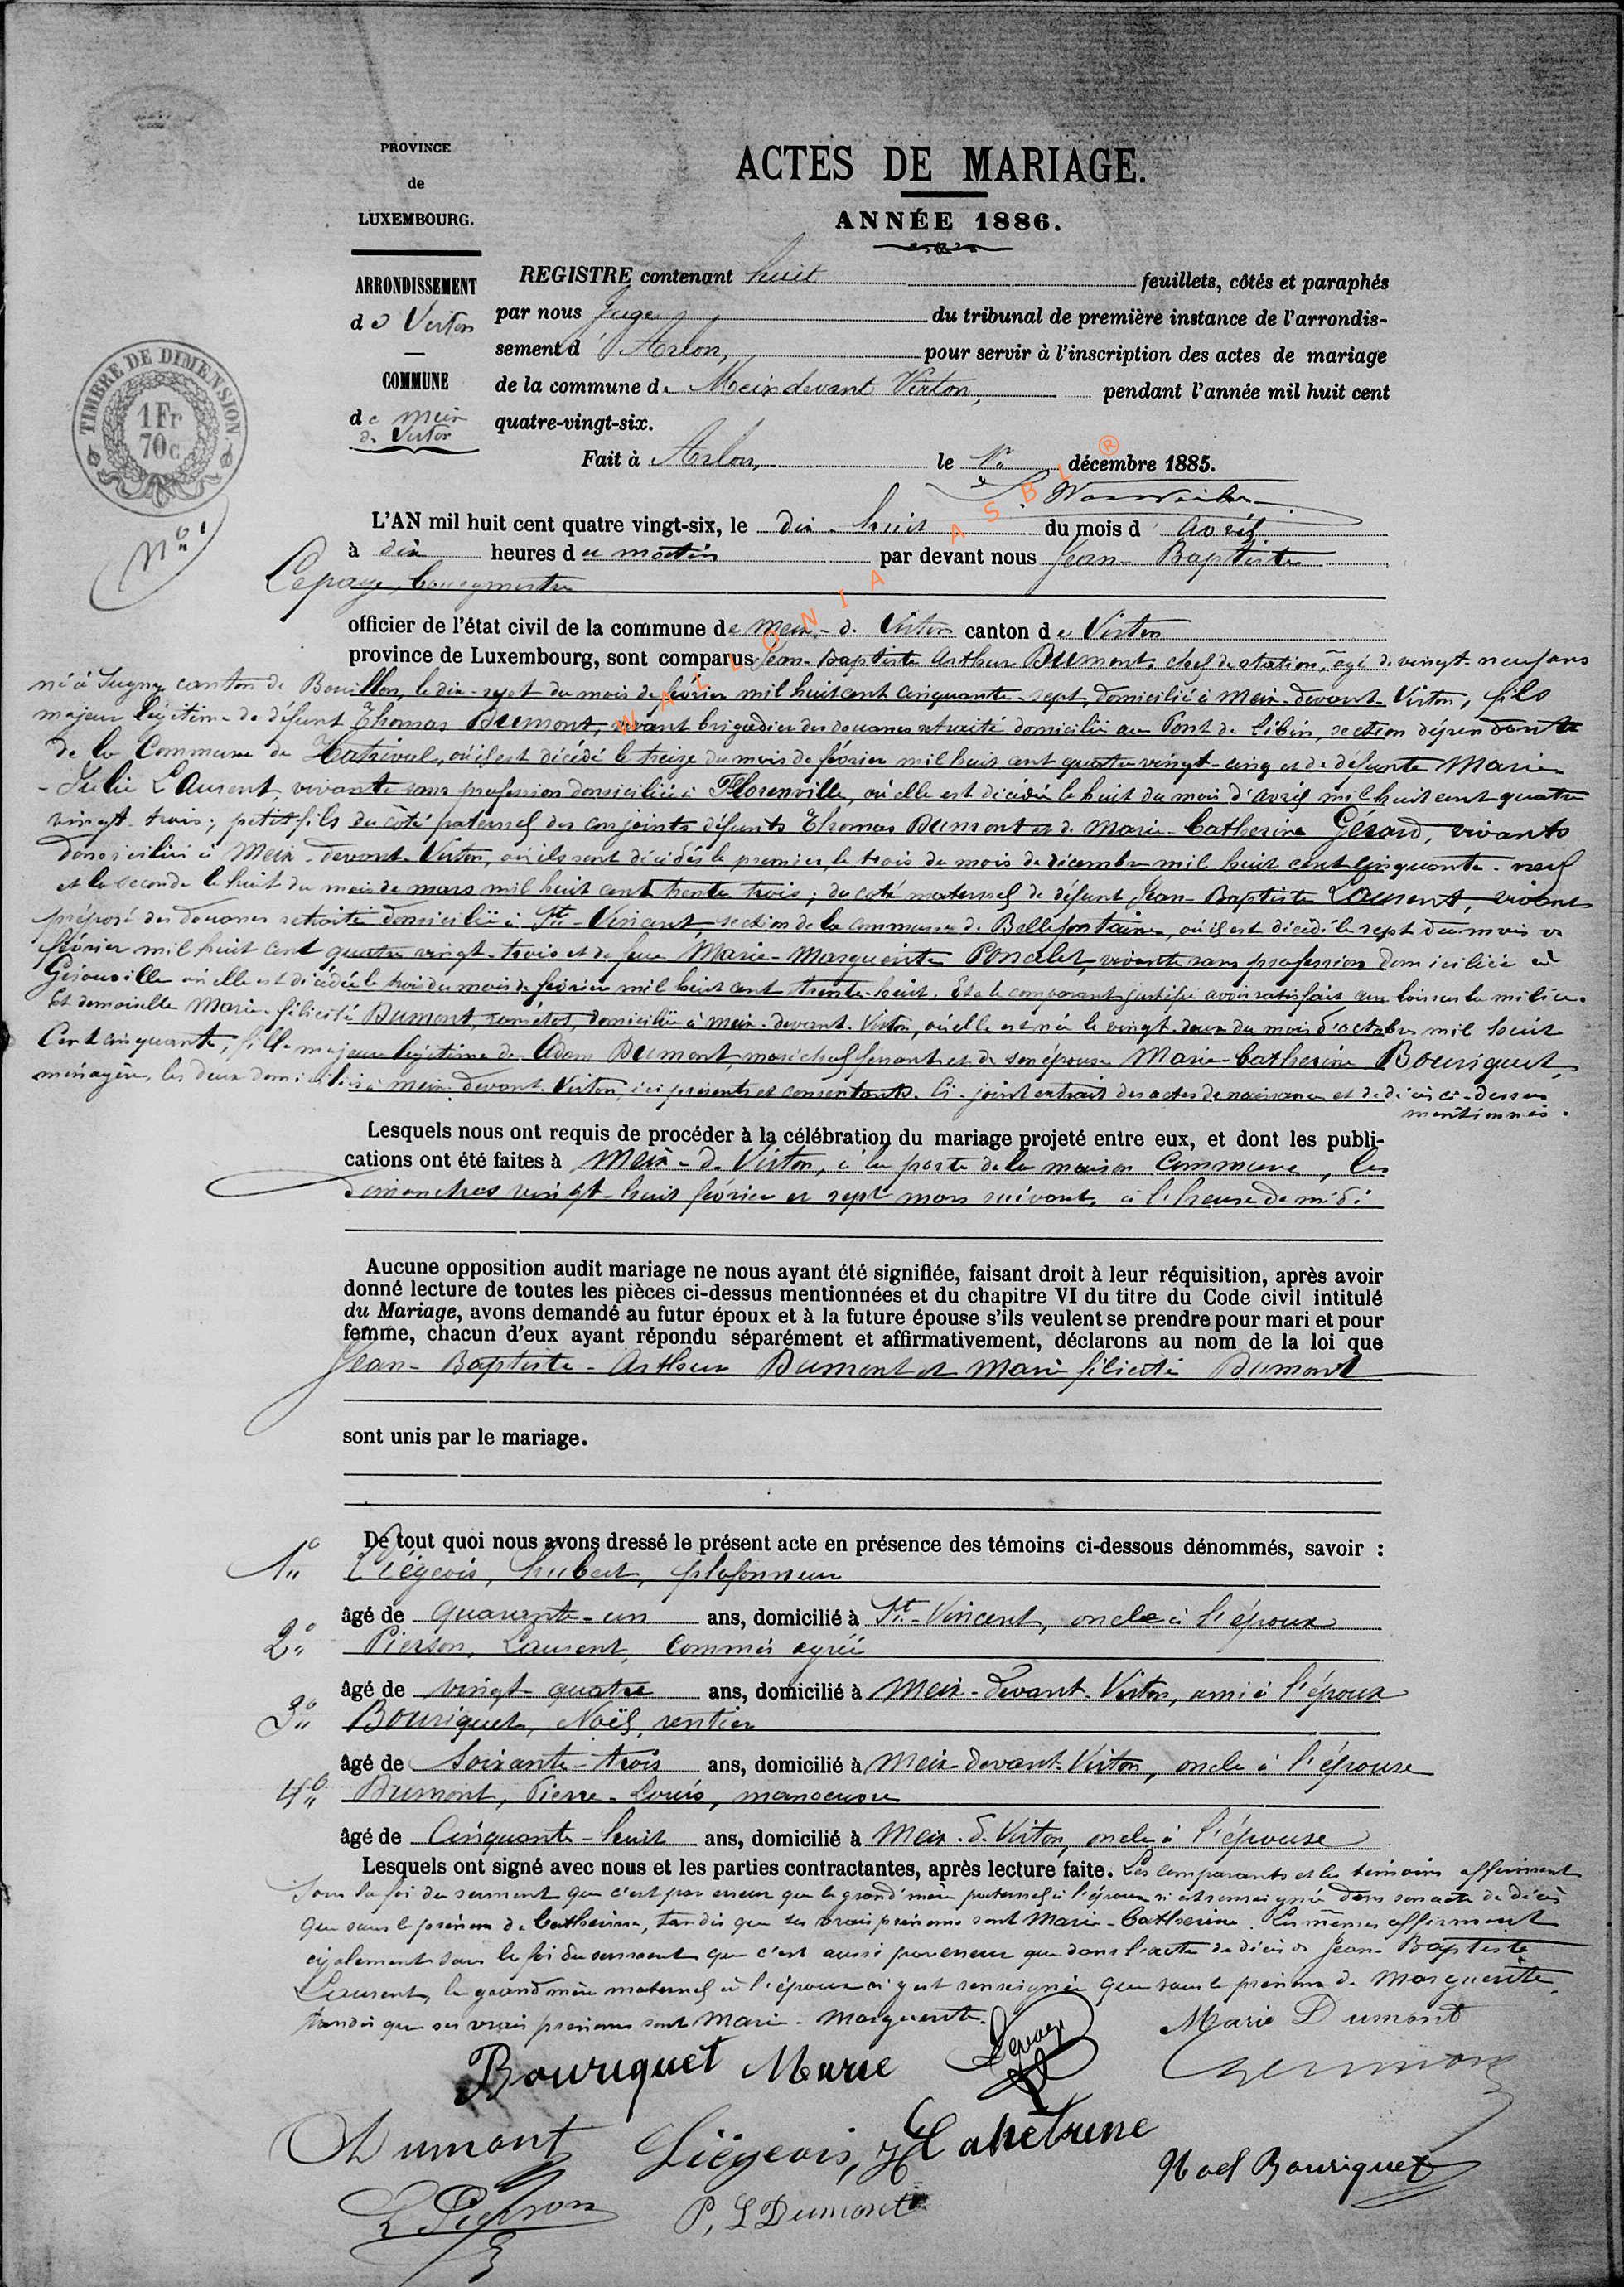 PROVINCE
de
LUXEMBOURG.
ARRONDISSEMENT
de Virton
COMMUNE
de Meix
d. Virton
TIMBRE DE DIMENSION.
1 Fr
70c
N° 1
ACTES DE MARIAGE.
ANNÉE 1886.
REGISTRE contenant huit feuillets, côtés et paraphés
par nous Juge du tribunal de première instance de l'arrondis-
sement d'Arlon, pour servir à l'inscription des actes de mariage
de la commune de Meix devant Virton, pendant l'année mil huit cent
quatre-vingt-six.
Fait à Arlon, le 1er décembre 1885.
WALLONIA ASBL ®
L'AN mil huit cent quatre vingt-six, le dix-huit du mois d'avril
à dix heures du matin par devant nous Jean-Baptiste
Lepage, bourgmestre
officier de l'état civil de la commune de Meix-d. Virton canton de Virton
province de Luxembourg, sont comparus Jean-Baptiste Arthur Dumont, chef de station, âgé de vingt-neuf ans
né à Sugny, canton de Bouillon, le dix-sept du mois de février mil huit cent cinquante-sept, domicilié à Meix-devant-Virton, fils
majeur légitime de défunt Thomas Dumont, vivant brigadier des douanes retraité domicilié au Pont de Libin, section dépendante
de la Commune de Hatrival, où il est décédé le treize du mois de février mil huit cent quatre vingt-cinq et de défunte Marie
-Julie Laurent, vivante sans profession domiciliée à Florenville, où elle est décédée le huit du mois d'avril mil huit cent quatre
vingt-trois; petit fils du côté paternel des conjoints défunts Thomas Dumont et de Marie-Catherine Gerard, vivants
domiciliés à Meix-devant-Virton, où ils sont décédés le premier, le trois du mois de décembre mil huit cent cinquante-neuf
et la seconde le huit du mois de mars mil huit cent trente trois; du coté maternel de défunt Jean-Baptiste Laurent, vivant
préposé des douanes retraité domicilié à St-Vincent, section de la commune de Bellefontaine, où il est décédé le sept du mois de
février mil huit cent quatre vingt-trois et de feue Marie-Marguerite Poncelet, vivante sans profession domiciliée à
Gérouville où elle est décédée le trois du mois de février mil huit cent trente-huit. Et a le comparant justifié avoir satisfait aux lois sur la milice.
Et demoiselle Marie-Félicité Dumont, domiciliée à Meix-devant-Virton, où elle est née le vingt-deux du mois d'octobre mil huit
Cent cinquante, fille majeure légitime de Adam Dumont, maréchal ferrant et de son épouse Marie-Catherine Bouriquet,
ménagère, les deux domiciliés à Meix-devant-Virton, ici présents et consentants. Ci-joint extrait des actes de naissance et de décès ci-dessus
mentionnés.
Lesquels nous ont requis de procéder à la célébration du mariage projeté entre eux, et dont les publi-
cations ont été faites à Meix-d. Virton, à la porte de la maison Commune, les
dimanches vingt-huit février et sept mars suivant, à l'heure de midi
Aucune opposition audit mariage ne nous ayant été signifiée, faisant droit à leur réquisition, après avoir
donné lecture de toutes les pièces ci-dessus mentionnées et du chapitre VI du titre du Code civil intitulé
du Mariage, avons demandé au futur époux et à la future épouse s'ils veulent se prendre pour mari et pour
femme, chacun d'eux ayant répondu séparément et affirmativement, déclarons au nom de la loi que
Jean-Baptiste-Arthur Dumont et Marie félicité Dumont
sont unis par le mariage.
De tout quoi nous avons dressé le présent acte en présence des témoins ci-dessous dénommés, savoir :
1° Liégeois, Hubert, plafonneur
âgé de quarante-un ans, domicilié à St-Vincent, oncle à l'époux
2° Pierson, Laurent, Commis agréé
âgé de vingt quatre ans, domicilié à Meix-devant-Virton, ami à l'époux
3° Bouriquet, Noël, rentier
âgé de Soixante-trois ans, domicilié à Meix-devant-Virton, oncle à l'épouse
4° Dumont, Pierre-Louis, manoeuvre
âgé de Cinquante-huit ans, domicilié à Meix-d. Virton, oncle à l'épouse
Lesquels ont signé avec nous et les parties contractantes, après lecture faite. Les comparants et les témoins affirment
sous la foi du serment que c'est par erreur que la grand'mère paternel à l'époux n'est renseignée dans son acte de décès
que sous le prénom de Catherine, tandis que ses vrais prénoms sont Marie-Catherine. Les mêmes affirment
également sous la foi du serment que c'est aussi par erreur que dans l'acte de décès de Jean-Baptiste
Laurent, la grand mère maternel à l'époux n'y est renseignée que sous le prénom de Marguerite,
tandis que ses vrais prénoms sont Marie-Marguerite.
Marie Dumont
Bouriquet Marie Lepage
Dumont Liégeois, H Cathetrine
Noel Bouriquet
L Pierson P, L Dumont